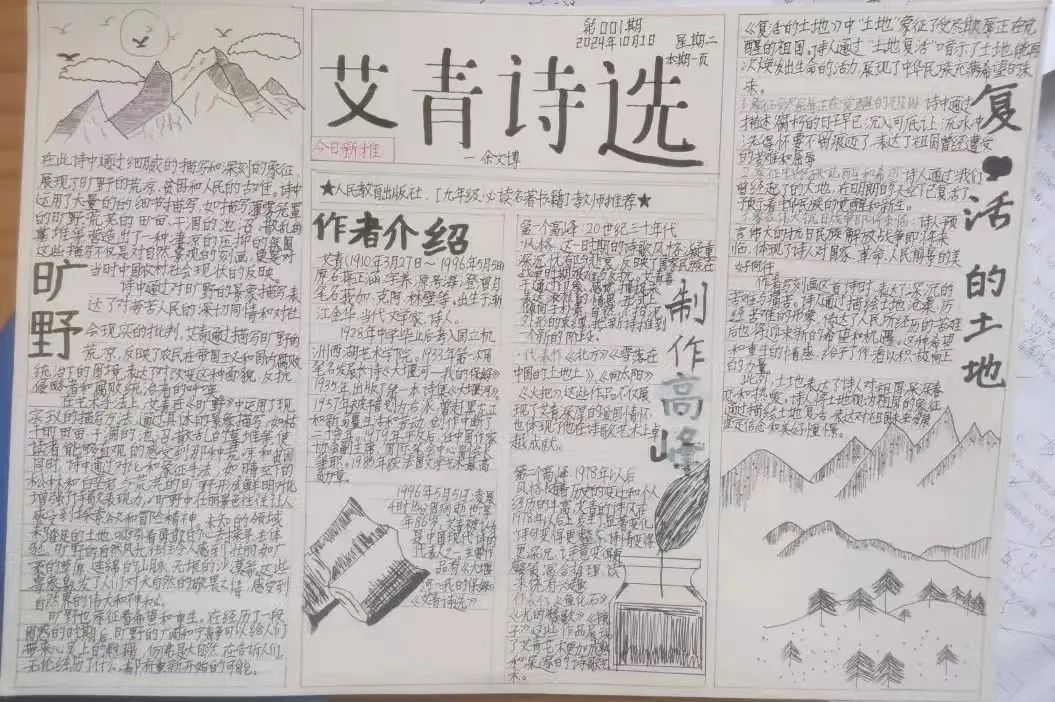 第001期
2024年10月1日 星期二
本期一页
艾青诗选
今日新推
—余文博
★人民教育出版社,「九年级·必读名著书籍」教师推荐★
在此诗中通过细腻的描写和深刻的象征
展现了旷野的荒凉、贫困和人民的苦难。诗中
运用了大量的的细节描写,如对薄雾笼罩
的旷野、荒芜的田亩、干涸的池沼、散乱的
墓堆等营造出了一种凄凉的压抑的氛围
这些描写不仅是对自然景观的刻画,更是对
当时中国农村社会现状的反映
旷野
诗中通过对旷野的景象描写表
达了对劳苦人民的深切同情和对社
会现实的批判,艾青通过描写旷野的
荒凉,反映了农民在帝国主义和国内腐败
统治下的困境,表达了对改变这种面貌、反抗
侵略者和腐败统治者的呼唤
在艺术手法上,艾青在《旷野》中运用了现
实主义的描写方法,通过具体的景象描写,如枯
干的田亩、干涸的池沼、散乱的墓堆等,使
读者能够直观的感受到那种荒凉和贫困
同时,诗中通过对比和象征手法,如晴空下的
松林和白屋与荒芜的旷野形成鲜明对比
增强了诗歌表现力。旷野中壮丽景色往往让人
感受到探索欲和冒险精神,未知的领域
和难走的土地,吸引着勇敢的心去探寻去体
验。旷野的自然风光往往令人感到壮丽如广
袤的草原、连绵的山脉、无垠的沙漠等这些
景象激发了人们对大自然的敬畏之情,感受到
自然界的伟大和神秘。
旷野也象征着希望和重生。在经历了一段
困惑的时期后,旷野的广阔和宁静可以给人们
带来心灵上的慰藉,仿佛是大自然在告诉人们
无论经历了什么,都有重新开始的可能。
作者介绍
艾青(1910年3月27日~1996年5月5日)
原名蒋正涵,字养源,号海澄,曾用
笔名莪加、克阿、林壁等,出生于浙
江金华,当代文学家、诗人。
1928年中学毕业后考入国立杭
州西湖艺术学院。1933年第一次用
笔名发表长诗《大堰河—我的保姆》
1935年,出版了第一本诗集《大堰河》
1957年被错划为右派,曾赴黑龙江
和新疆生活和劳动,创作中断了
二十余年。1979年平反后,任中国作家
协会副主席、国际笔会中心副会长
等职。1985年获法国文学艺术最高
勋章。
1996年5月5日凌晨
4时15分因病逝世享
年86岁,艾青被认为
是中国现代诗的
代表人之一。主要作
品有《大堰
河—我的保姆》
《艾青诗选》
制作高峰
第一个高峰:20世纪三十年代
风格:这一时期的诗歌风格凝重
一个新的阶段。
·代表作《北方》《雪落在
中国的土地上》《向太阳》
《火把》这些作品不仅展
现了艾青深厚的爱国情怀,
也体现了他在诗歌艺术上卓
越成就。
第二个高峰:1978年以后
风格:随着历史的变迁和个人
经历的丰富,艾青的诗风在
1978年以后发生了显著变化
诗句变得更整齐,诗情变得
更深沉,诗意变得
来很有兴趣
代表作:《鱼化石》
《光的赞歌》《镜
子》这些作品展现
了艾青艺术更加成熟
和深邃的诗歌艺
术。
《复活的土地》中“土地”象征了饱受欺辱正在觉
醒的祖国,诗人通过“土地复活”暗示了土地能再
次焕发出生命的活力,展现了中华民族充满希望的未
来。
复活的土地
1.象征饱受屈辱正在觉醒的祖国:诗中通过
描述“腐朽的日子早已沉入河底,让流水冲
洗得快要不留痕迹了”表达了祖国曾经遭受
的苦难和屈辱
2.象征中华民族的觉醒和希望:诗人通过“我们
曾经死了的大地,在明朗的天空下已复活了”
预言着中华民族的觉醒和新生。
言伟大的抗日民族解放战争即将来
临,体现了诗人对国家、革命、人民前景的美
好向往。
作者在刻画这首诗时,表达了深沉的
苦难与痛苦。诗人通过描绘土地沧桑、历
经苦难的形象,传达了人民所经历的苦难
后也将迎来新的希望和机遇。这种希望
和重生的情感,给予了作者以积极向上
的力量。
此外,土地也表达了诗人对祖国深沉眷
恋和热爱,诗人将土地视为祖国的象征
通过描绘土地复活,表达对祖国未来发展
坚定信念和美好憧憬。